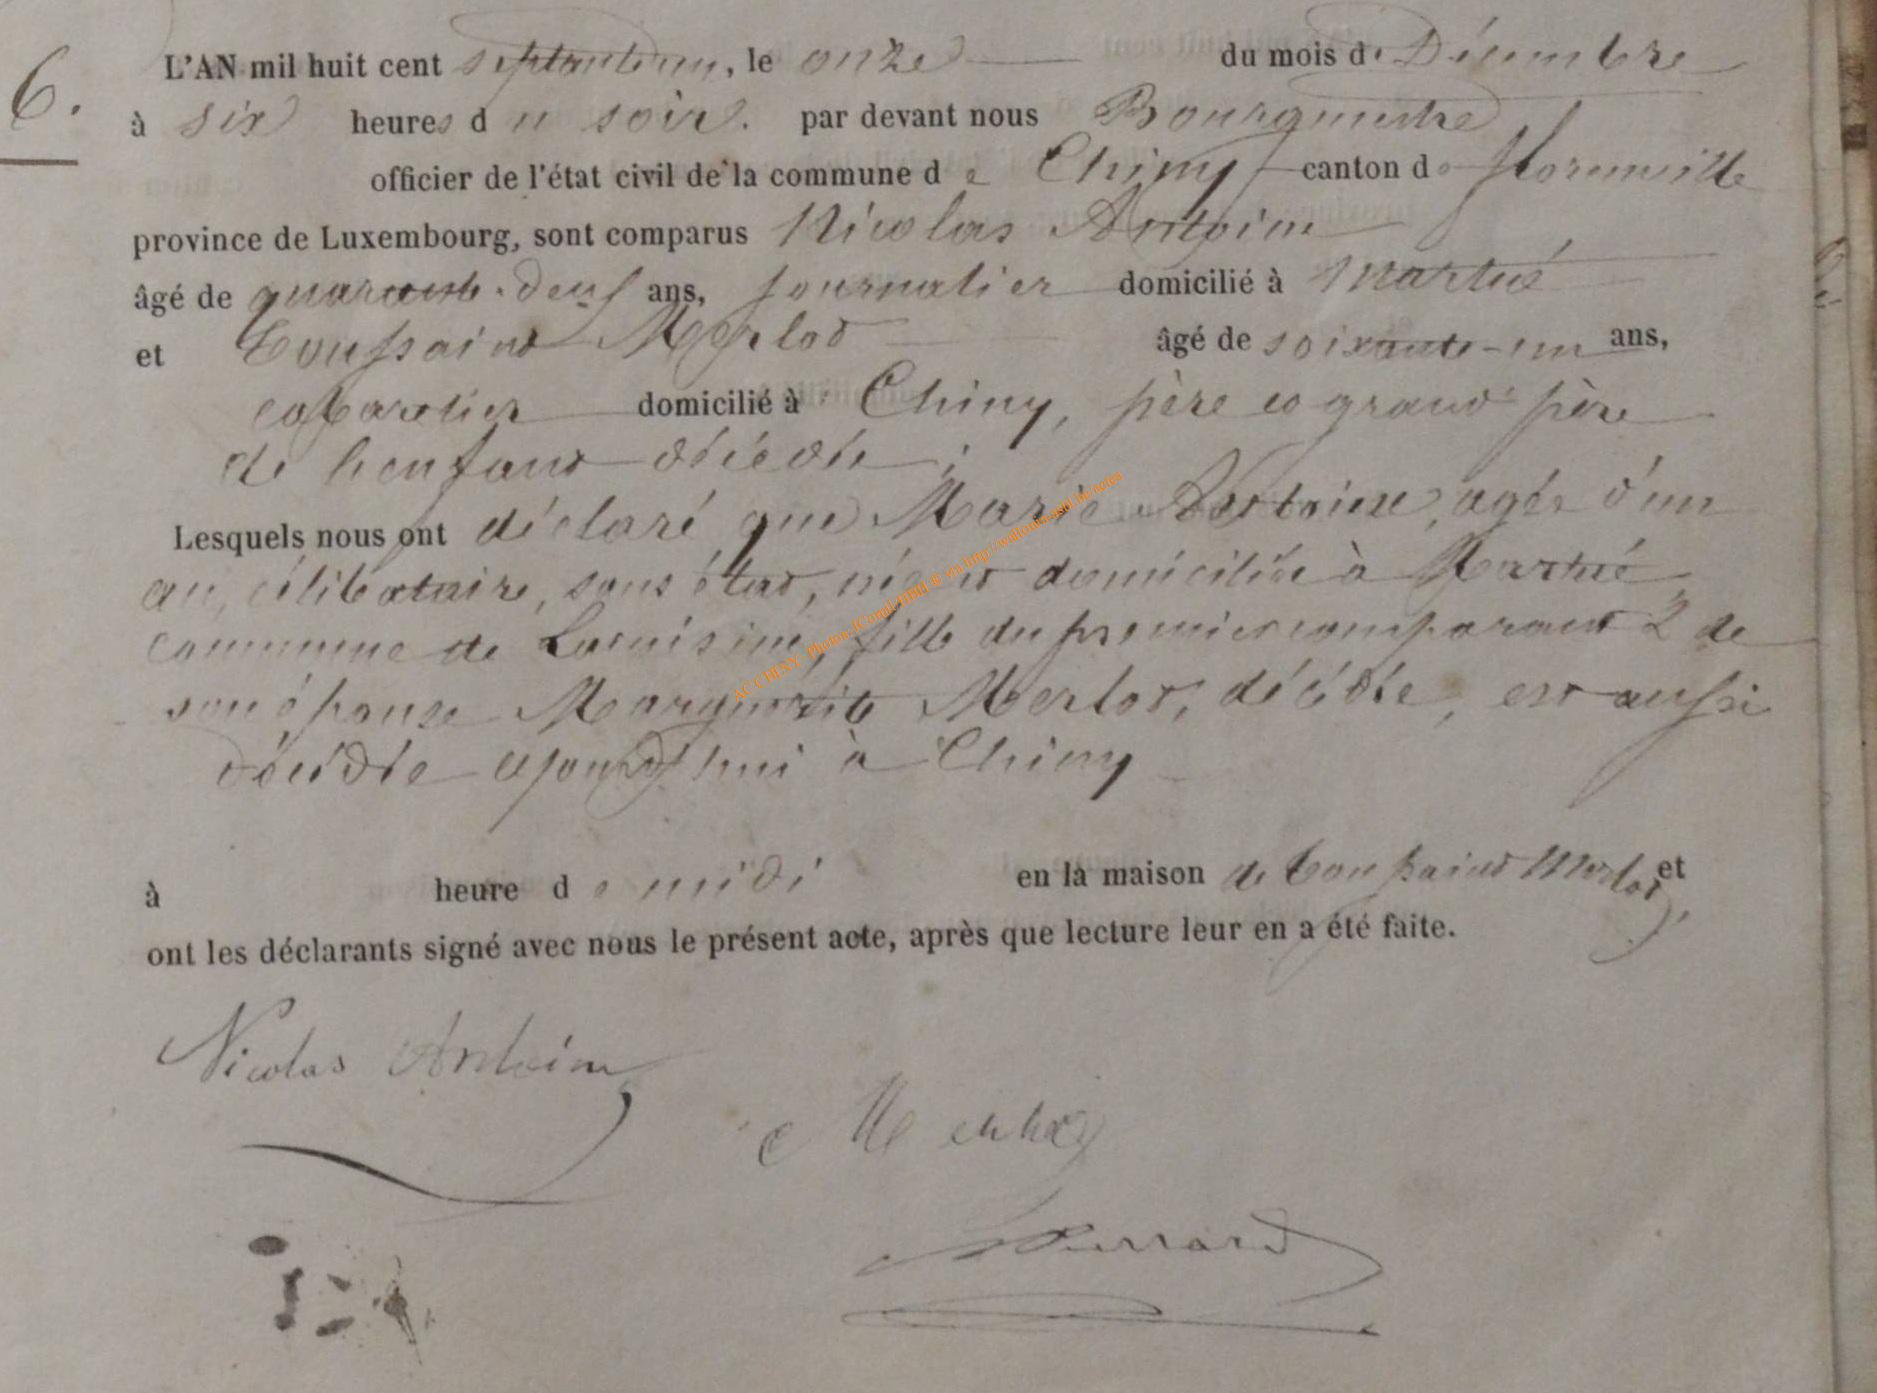 6.
L'AN mil huit cent septante un, le onze du mois de Décembre
à six heures du soir. par devant nous Bourgmestre
officier de l'état civil de la commune de Chiny canton de Florenville
province de Luxembourg, sont comparus Nicolas Antoine
âgé de quarante-deux ans, journalier domicilié à Martué
et Toussaint Merlot âgé de soixante-un ans,
cabaretier domicilié à Chiny, père et grand père
de l'enfant décédée ;
Lesquels nous ont déclaré que Marie Antoine, agée d'un
an, célibataire, sans état, née et domiciliée à Martué
commune de Lacuisine, fille du premier comparant & de
son épouse Marguerite Merlot, décédée, est aussi
décédée ajourd'hui à Chiny
à heure de midi en la maison de Toussaint Merlot, et
ont les déclarants signé avec nous le présent acte, après que lecture leur en a été faite.
Nicolas Antoine
Merlot
AC CHINY - Photos: via http://wallonia-asbl.be/notes